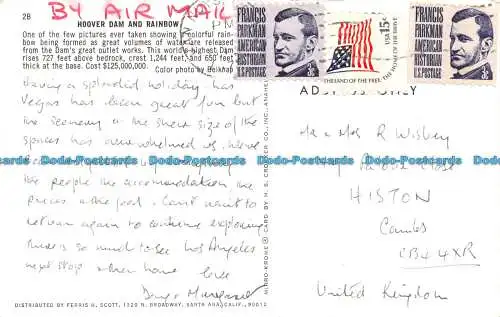 BY AIR MAIL
2B
HOOVER DAM AND RAINBOW
One of the few pictures ever taken showing a colorful rain-
bow being formed as great volumes of water are released
from the Dam's great outlet works. This world's highest Dam
rises 727 feet above bedrock, crest 1,244 feet, and 650 feet
thick at the base. Cost $125,000,000.
Color photo by Belknap
Having a splendid holiday, Las
Vegas has been great fun but
the scenery & the sheer size of the
spaces has overwhelmed us. have
the people the accommodation the
prices & the food. Can't want to
return again to continue exploring
there is so much to see Los Angeles
next stop then home love
Margaret
DISTRIBUTED BY FERRIS H. SCOTT, 1320 N. BROADWAY, SANTA ANA, CALIF., 92701
MIRRO-KROME ® CARD BY H. S. CROCKER CO., INC., ANAHEIM
PM
FRANCIS
PARKMAN
AMERICAN
HISTORIAN
U.S. POSTAGE 3¢
USA 15c
THE LAND OF THE FREE, THE HOME OF THE BRAVE
FRANCIS
PARKMAN
AMERICAN
HISTORIAN
U.S. POSTAGE 3¢
ADDRESS ONLY
Mr & Mrs R Wisbey
Close
HISTON
Cambs
CB4 4XR
United Kingdom
Dodo-Postcards.com Dodo-Postcards.com Dodo-Postcards.com Dodo-Postcards.com Dodo-Postcards.com